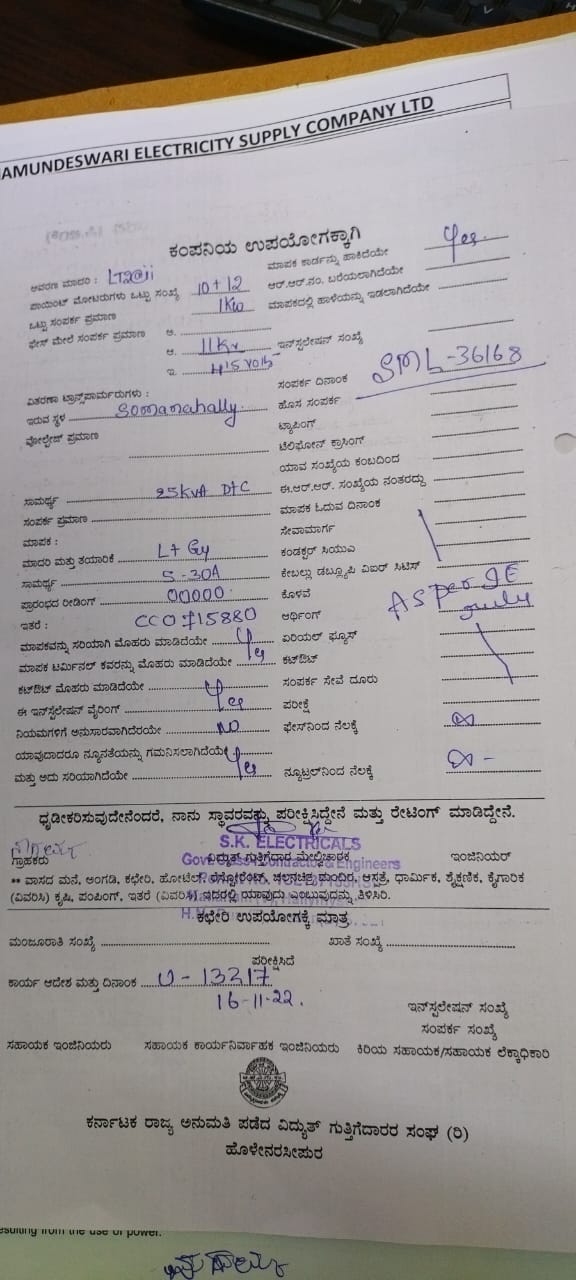 AMUNDESWARI ELECTRICITY SUPPLY COMPANY LTD
ಕಂಪನಿಯ ಉಪಯೋಗಕ್ಕಾಗಿ
ಆವರಣ ಮಾದರಿ : LT2@ii ಮಾಪಕ ಕಾರ್ಡನ್ನು ಹಾಕಿದೆಯೇ Yes
ಪಾಯಿಂಟ್ ಮೋಟರುಗಳು ಒಟ್ಟು ಸಂಖ್ಯೆ 10+12 ಆರ್.ಆರ್.ನಂ. ಬರೆಯಲಾಗಿದೆಯೇ
ಒಟ್ಟು ಸಂಪರ್ಕ ಪ್ರಮಾಣ 1KW ಮಾಪಕದಲ್ಲಿ ಹಾಳೆಯನ್ನು ಇಡಲಾಗಿದೆಯೇ
ಫೇಸ್ ಮೇಲೆ ಸಂಪರ್ಕ ಪ್ರಮಾಣ ಅ.
ಆ. 11Kv ಇನ್‌ಸ್ಟಲೇಷನ್ ಸಂಖ್ಯೆ
ಇ. 415 Volts
ವಿತರಣಾ ಟ್ರಾನ್ಸ್‌ಫಾರ್ಮರುಗಳು : ಸಂಪರ್ಕ ದಿನಾಂಕ SML-36168
ಇರುವ ಸ್ಥಳ Somanahally ಹೊಸ ಸಂಪರ್ಕ
ವೋಲ್ಟೇಜ್ ಪ್ರಮಾಣ ಟ್ಯಾಪಿಂಗ್
ಟೆಲಿಫೋನ್ ಕ್ರಾಸಿಂಗ್
ಯಾವ ಸಂಖ್ಯೆಯ ಕಂಬದಿಂದ
ಸಾಮರ್ಥ್ಯ 25KVA DTC ಈ.ಆರ್.ಆರ್. ಸಂಖ್ಯೆಯ ನಂತರದ್ದು
ಸಂಪರ್ಕ ಪ್ರಮಾಣ ಮಾಪಕ ಓದುವ ದಿನಾಂಕ
ಮಾಪಕ : ಸೇವಾಮಾರ್ಗ
ಮಾದರಿ ಮತ್ತು ತಯಾರಿಕೆ L+Gy ಕಂಡಕ್ಟರ್ ಸಿಯುಎ
ಸಾಮರ್ಥ್ಯ 5-30A ಕೇಬಲ್ಲು ಡಬ್ಲ್ಯೂಪಿ ವಿಐರ್ ಸಿಟಿಸ್
ಪ್ರಾರಂಭದ ರೀಡಿಂಗ್ 00000 ಕೊಳವೆ
ಇತರೆ : CC0715880 ಆರ್ಥಿಂಗ್ AS per IE
ಮಾಪಕವನ್ನು ಸರಿಯಾಗಿ ಮೊಹರು ಮಾಡಿದೆಯೇ Yes ಏರಿಯಲ್ ಫ್ಯೂಸ್
ಮಾಪಕ ಟರ್ಮಿನಲ್ ಕವರನ್ನು ಮೊಹರು ಮಾಡಿದೆಯೇ ಕಟ್‌ಔಟ್
ಕಟ್‌ಔಟ್ ಮೊಹರು ಮಾಡಿದೆಯೇ Yes ಸಂಪರ್ಕ ಸೇವೆ ದೂರು
ಈ ಇನ್‌ಸ್ಟಲೇಷನ್ ವೈರಿಂಗ್ ಪರೀಕ್ಷೆ
ನಿಯಮಗಳಿಗೆ ಅನುಸಾರವಾಗಿದೆರಯೇ NO ಫೇಸ್‌ನಿಂದ ನೆಲಕ್ಕೆ ∞
ಯಾವುದಾದರೂ ನ್ಯೂನತೆಯನ್ನು ಗಮನಿಸಲಾಗಿದೆಯೇ
ಮತ್ತು ಅದು ಸರಿಯಾಗಿದೆಯೇ Yes ನ್ಯೂಟ್ರಲ್‌ನಿಂದ ನೆಲಕ್ಕೆ ∞ -
ಧೃಡೀಕರಿಸುವುದೇನೆಂದರೆ, ನಾನು ಸ್ಥಾವರವನ್ನು ಪರೀಕ್ಷಿಸಿದ್ದೇನೆ ಮತ್ತು ರೇಟಿಂಗ್ ಮಾಡಿದ್ದೇನೆ.
S.K. ELECTRICALS
ಗ್ರಾಹಕರು ವಿದ್ಯುತ್ ಗುತ್ತಿಗೆದಾರ ಮೇಲ್ವಿಚಾರಕ ಇಂಜಿನಿಯರ್
** ವಾಸದ ಮನೆ, ಅಂಗಡಿ, ಕಛೇರಿ, ಹೋಟೆಲ್, ರೆಸ್ಟೋರೆಂಟ್, ಚಲನಚಿತ್ರ ಮಂದಿರ, ಆಸ್ಪತ್ರೆ, ಧಾರ್ಮಿಕ, ಶೈಕ್ಷಣಿಕ, ಕೈಗಾರಿಕ
(ವಿವರಿಸಿ) ಕೃಷಿ, ಪಂಪಿಂಗ್, ಇತರೆ (ವಿವರಿಸಿ) ಇದರಲ್ಲಿ ಯಾವುದು ಎಂಬುವುದನ್ನು ತಿಳಿಸಿರಿ.
ಕಛೇರಿ ಉಪಯೋಗಕ್ಕೆ ಮಾತ್ರ
ಮಂಜೂರಾತಿ ಸಂಖ್ಯೆ ಖಾತೆ ಸಂಖ್ಯೆ
ಪರೀಕ್ಷಿಸಿದೆ
ಕಾರ್ಯ ಆದೇಶ ಮತ್ತು ದಿನಾಂಕ U-13317
16-11-22. ಇನ್‌ಸ್ಟಲೇಷನ್ ಸಂಖ್ಯೆ
ಸಂಪರ್ಕ ಸಂಖ್ಯೆ
ಸಹಾಯಕ ಇಂಜಿನಿಯರು ಸಹಾಯಕ ಕಾರ್ಯನಿರ್ವಾಹಕ ಇಂಜಿನಿಯರು ಕಿರಿಯ ಸಹಾಯಕ/ಸಹಾಯಕ ಲೆಕ್ಕಾಧಿಕಾರಿ
ಕರ್ನಾಟಕ ರಾಜ್ಯ ಅನುಮತಿ ಪಡೆದ ವಿದ್ಯುತ್ ಗುತ್ತಿಗೆದಾರರ ಸಂಘ (ರಿ)
ಹೊಳೇನರಸೀಪುರ
esulting from the use of power.